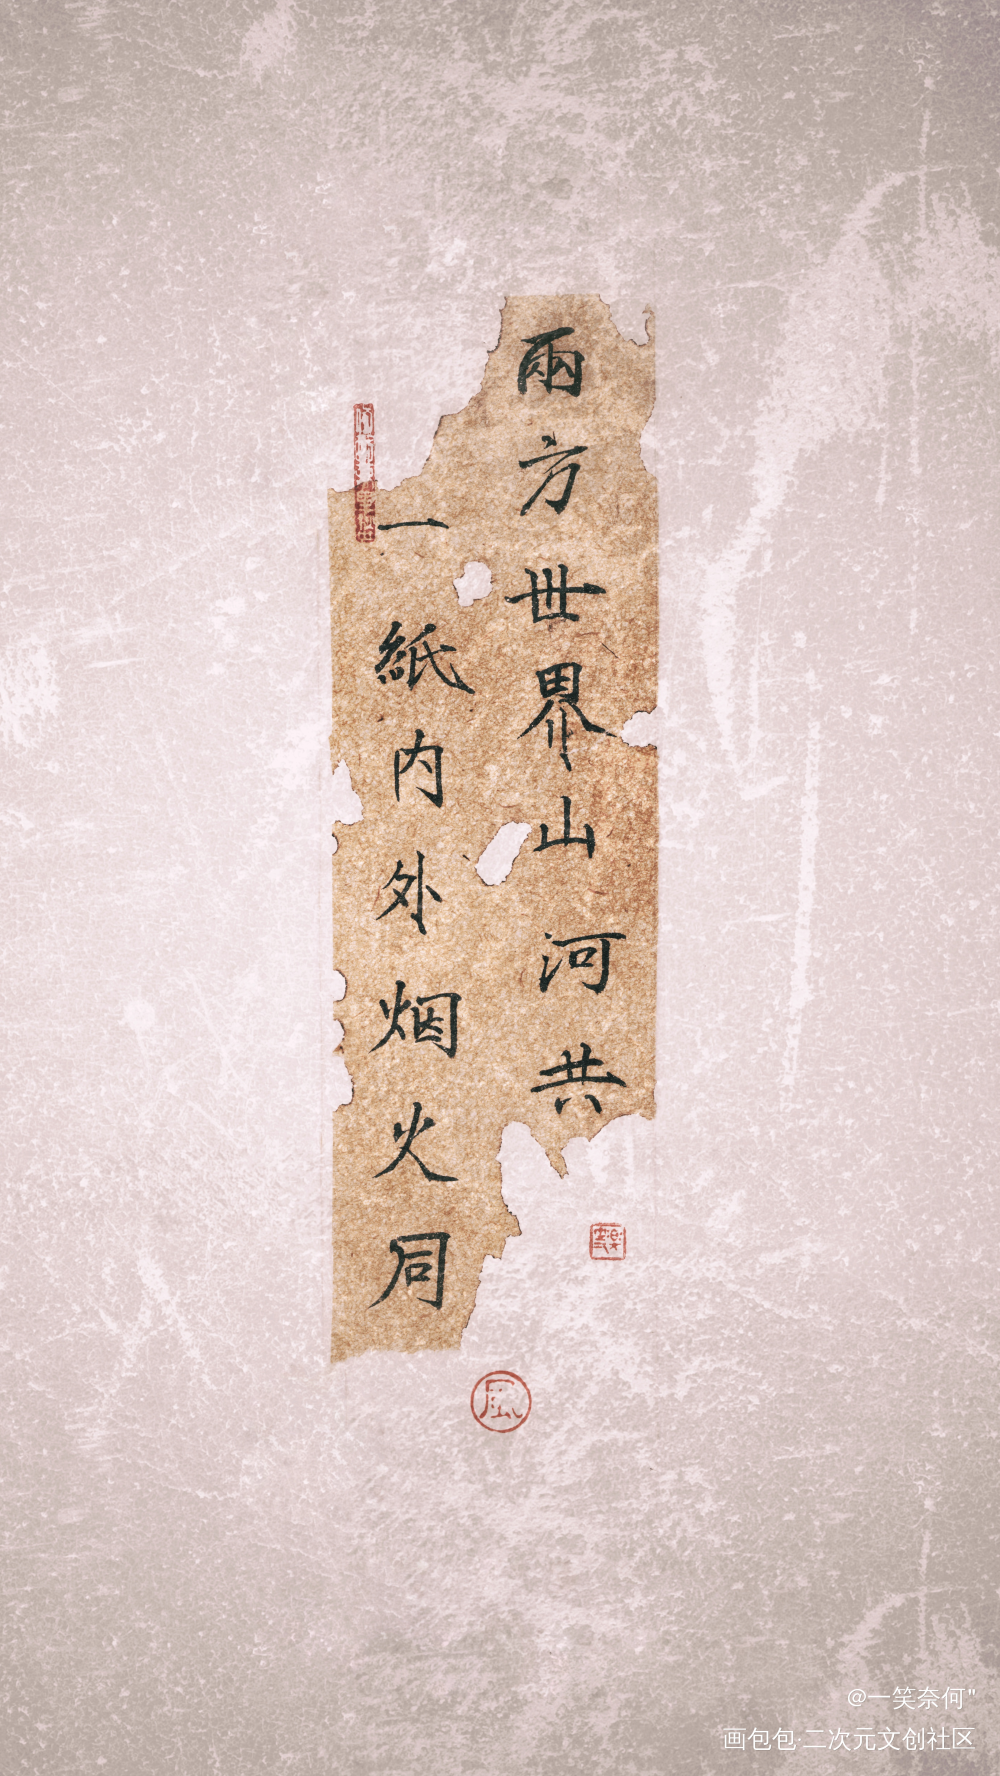 兩方世界山河共
一紙内外烟火同
風
@一笑奈何"
画包包·二次元文创社区